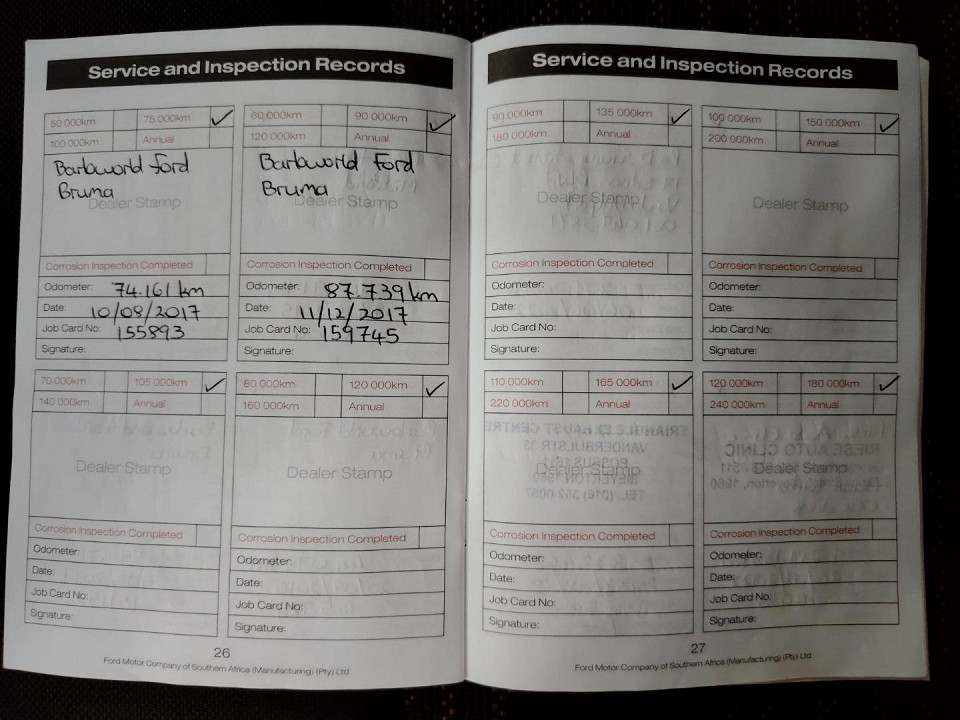 Service and Inspection Records
50 000km 75 000km ✓
100 000km Annual
Barloworld Ford
Bruma
Dealer Stamp
Corrosion Inspection Completed
Odometer: 74.161 km
Date: 10/08/2017
Job Card No: 155893
Signature:
60 000km 90 000km ✓
120 000km Annual
Barloworld Ford
Bruma
Dealer Stamp
Corrosion Inspection Completed
Odometer: 87.739 km
Date: 11/12/2017
Job Card No: 159745
Signature:
70 000km 105 000km ✓
140 000km Annual
Dealer Stamp
Corrosion Inspection Completed
Odometer:
Date:
Job Card No:
Signature:
80 000km 120 000km ✓
160 000km Annual
Dealer Stamp
Corrosion Inspection Completed
Odometer:
Date:
Job Card No:
Signature:
26
Ford Motor Company of Southern Africa (Manufacturing) (Pty) Ltd
Service and Inspection Records
90 000km 135 000km ✓
180 000km Annual
Dealer Stamp
Corrosion Inspection Completed
Odometer:
Date:
Job Card No:
Signature:
100 000km 150 000km ✓
200 000km Annual
Dealer Stamp
Corrosion Inspection Completed
Odometer:
Date:
Job Card No:
Signature:
110 000km 165 000km ✓
220 000km Annual
TRIANGLE EXHAUST CENTRE
VANDERBIJLSTR 33
Dealer Stamp
MEYERTON 1960
TEL. (016) 362-0057
Corrosion Inspection Completed
Odometer:
Date:
Job Card No:
Signature:
120 000km 180 000km ✓
240 000km Annual
RIESE AUTO CLINIC
Dealer Stamp
Meyerton, 1960
Corrosion Inspection Completed
Odometer:
Date:
Job Card No:
Signature:
27
Ford Motor Company of Southern Africa (Manufacturing) (Pty) Ltd